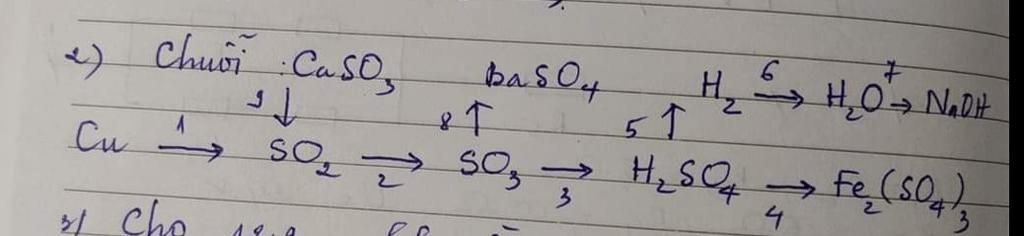 2) Chuỗi : CaSO3 baSO4 H2 6→ H2O 7→ NaOH
9↓ 8↑ 5↑
Cu 1→ SO2 →2 SO3 →3 H2SO4 →4 Fe2(SO4)3
3) Cho